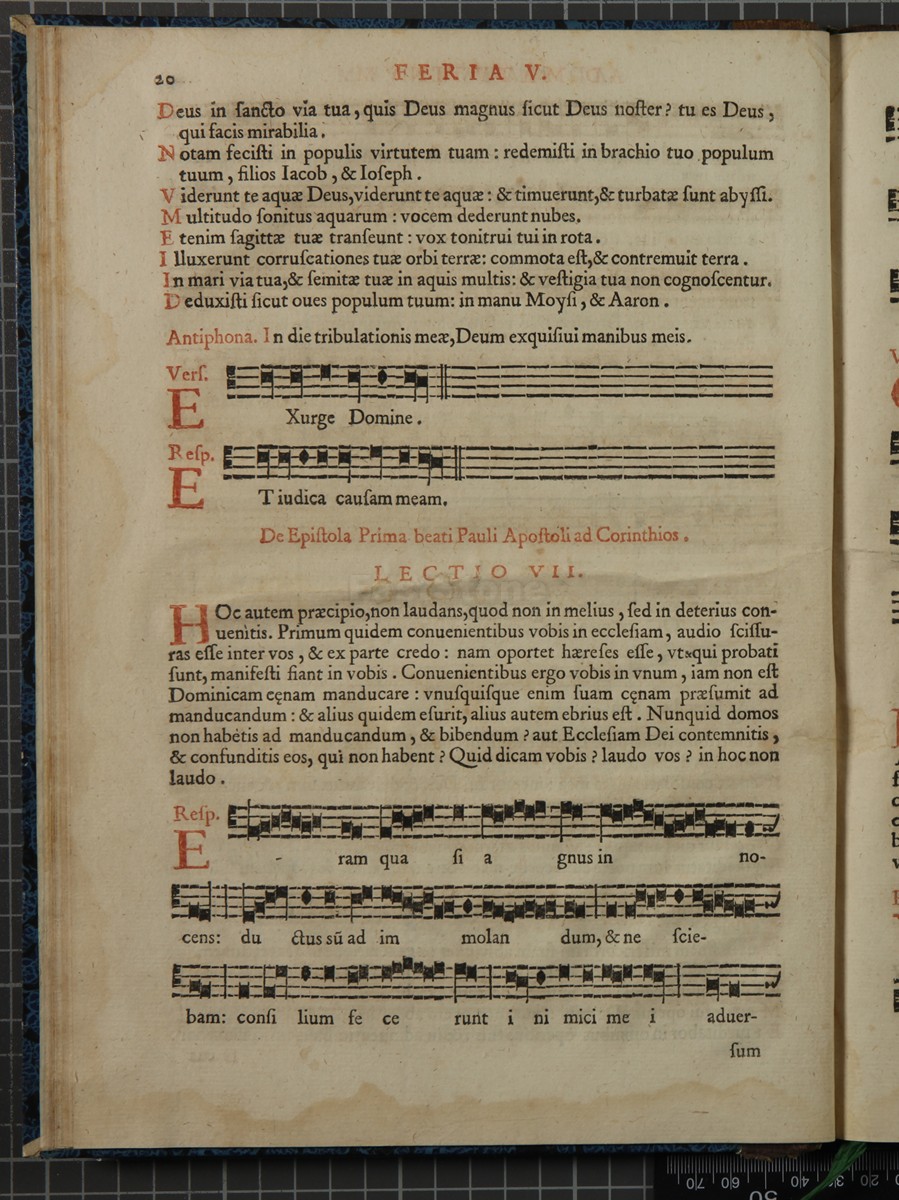 20
FERIA V.
Deus in ſancto via tua, quis Deus magnus ſicut Deus noſter? tu es Deus,
qui facis mirabilia.
Notam feciſti in populis virtutem tuam: redemiſti in brachio tuo populum
tuum, filios Iacob, & Ioſeph.
Viderunt te aquæ Deus, viderunt te aquæ: & timuerunt, & turbatæ ſunt abyſſi.
Multitudo ſonitus aquarum: vocem dederunt nubes.
Etenim ſagittæ tuæ tranſeunt: vox tonitrui tui in rota.
Illuxerunt corruſcationes tuæ orbi terræ: commota eſt, & contremuit terra.
In mari via tua, & ſemitæ tuæ in aquis multis: & veſtigia tua non cognoſcentur.
Deduxiſti ſicut oues populum tuum: in manu Moyſi, & Aaron.
Antiphona. In die tribulationis meæ, Deum exquiſiui manibus meis.
Verſ.
EXurge Domine.
Reſp.
ETiudica cauſam meam.
De Epiſtola Prima beati Pauli Apoſtoli ad Corinthios.
LECTIO VII.
HOc autem præcipio, non laudans, quod non in melius, ſed in deterius con-
uenitis. Primum quidem conuenientibus vobis in eccleſiam, audio ſciſſu-
ras eſſe inter vos, & ex parte credo: nam oportet hæreſes eſſe, vt qui probati
ſunt, manifeſti fiant in vobis. Conuenientibus ergo vobis in vnum, iam non eſt
Dominicam cęnam manducare: vnuſquiſque enim ſuam cęnam præſumit ad
manducandum: & alius quidem eſurit, alius autem ebrius eſt. Nunquid domos
non habetis ad manducandum, & bibendum? aut Eccleſiam Dei contemnitis,
& confunditis eos, qui non habent? Quid dicam vobis? laudo vos? in hoc non
laudo.
Reſp.
E - ram qua ſi a gnus in no-
cens: du ctus sū ad im molan dum, & ne ſcie-
bam: conſi lium fe ce runt i ni mici me i aduer-
ſum
70 60 50 40 30 20